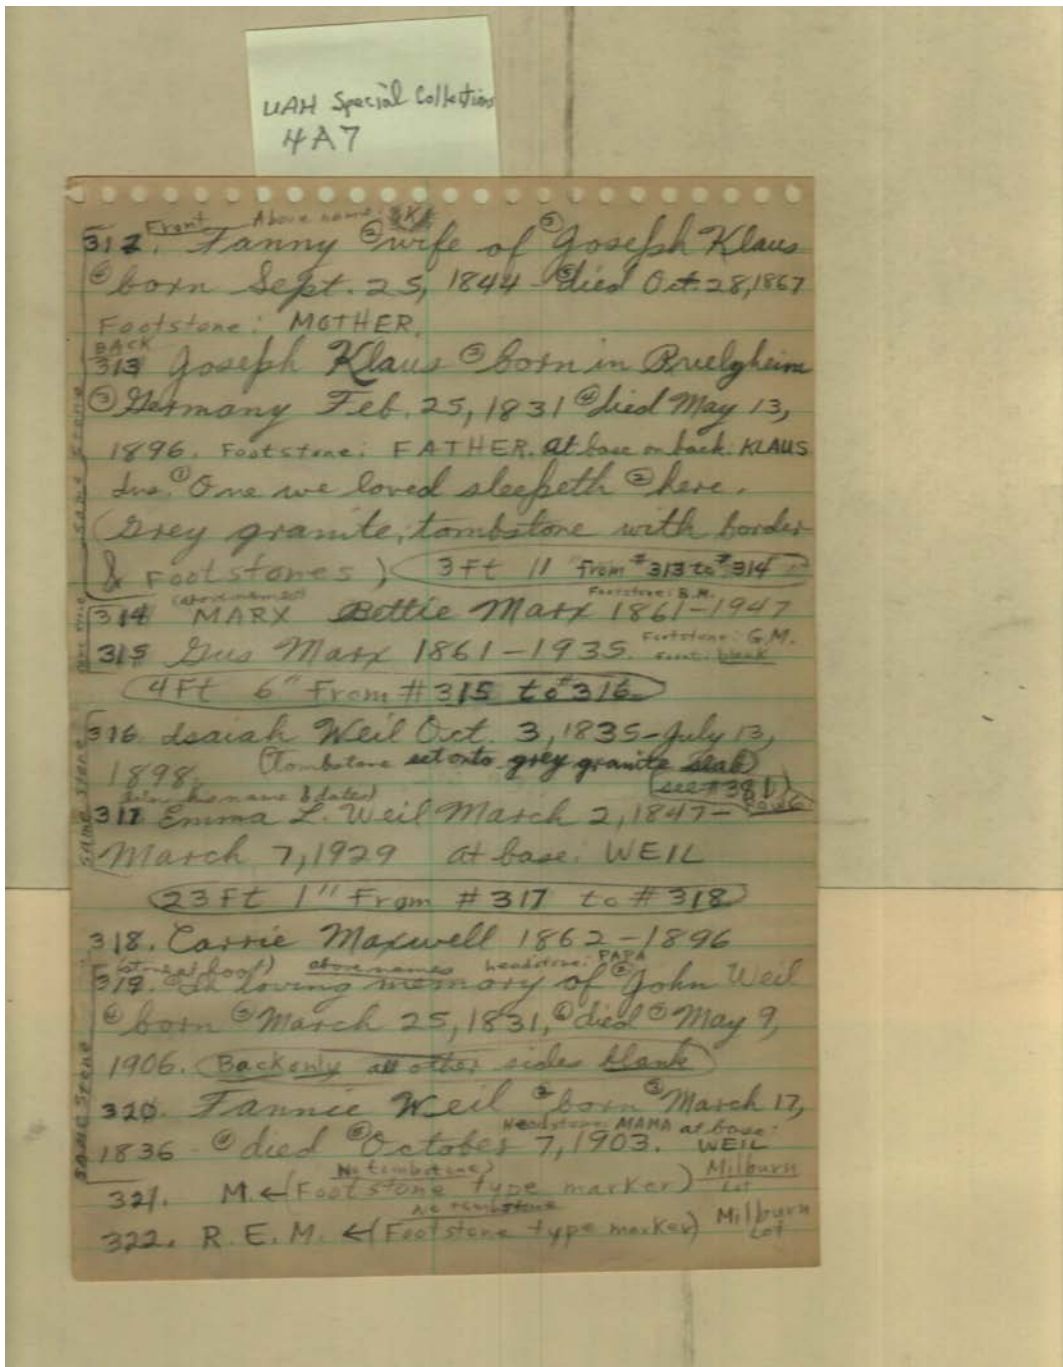 UAH Special Collections
4A7
Front Above name: K
312. Fanny ② wife of ③ Joseph Klaus
④ born Sept. 25, 1844 - ⑤ died Oct. 28, 1867
Footstone: MOTHER.
BACK
313 Joseph Klaus ② born in Ruelzheim
③ Germany Feb. 25, 1831 ④ died May 13,
1896. Footstone: FATHER. at base on back: KLAUS
Ins. ① One we loved sleepeth ② here.
(Grey granite, tombstone with border
& Footstones) 3ft 11" from #313 to #314
same stone
(above names) Footstone: B.M.
314 MARX Bettie Marx 1861-1947
315 Gus Marx 1861-1935. Footstone: G.M.
Front: blank
same stone
4Ft 6" From #315 to #316
316. Isaiah Weil Oct. 3, 1835-July 13,
1898. (Tombstone set onto grey granite slab)
(see #381) Row 6
(below his name & dates)
317 Emma L. Weil March 2, 1847-
March 7, 1929 at base: WEIL
SAME STONE
23Ft 1" From #317 to #318
318. Carrie Maxwell 1862-1896
(stone at foot) above names headstone: PAPA
319. ① In loving memory of ② John Weil
④ born ⑤ March 25, 1831, ⑥ died ⑦ May 9,
1906. (Back only all other sides blank)
320. Fannie Weil ② born ③ March 17,
Headstone: MAMA at base:
1836 - ④ died ⑤ October 7, 1903. WEIL
SAME STONE
(No tombstone)
321. M. ← (Footstone type marker) Milburn Lot
No tombstone
322. R. E. M. ← (Footstone type marker) Milburn Lot